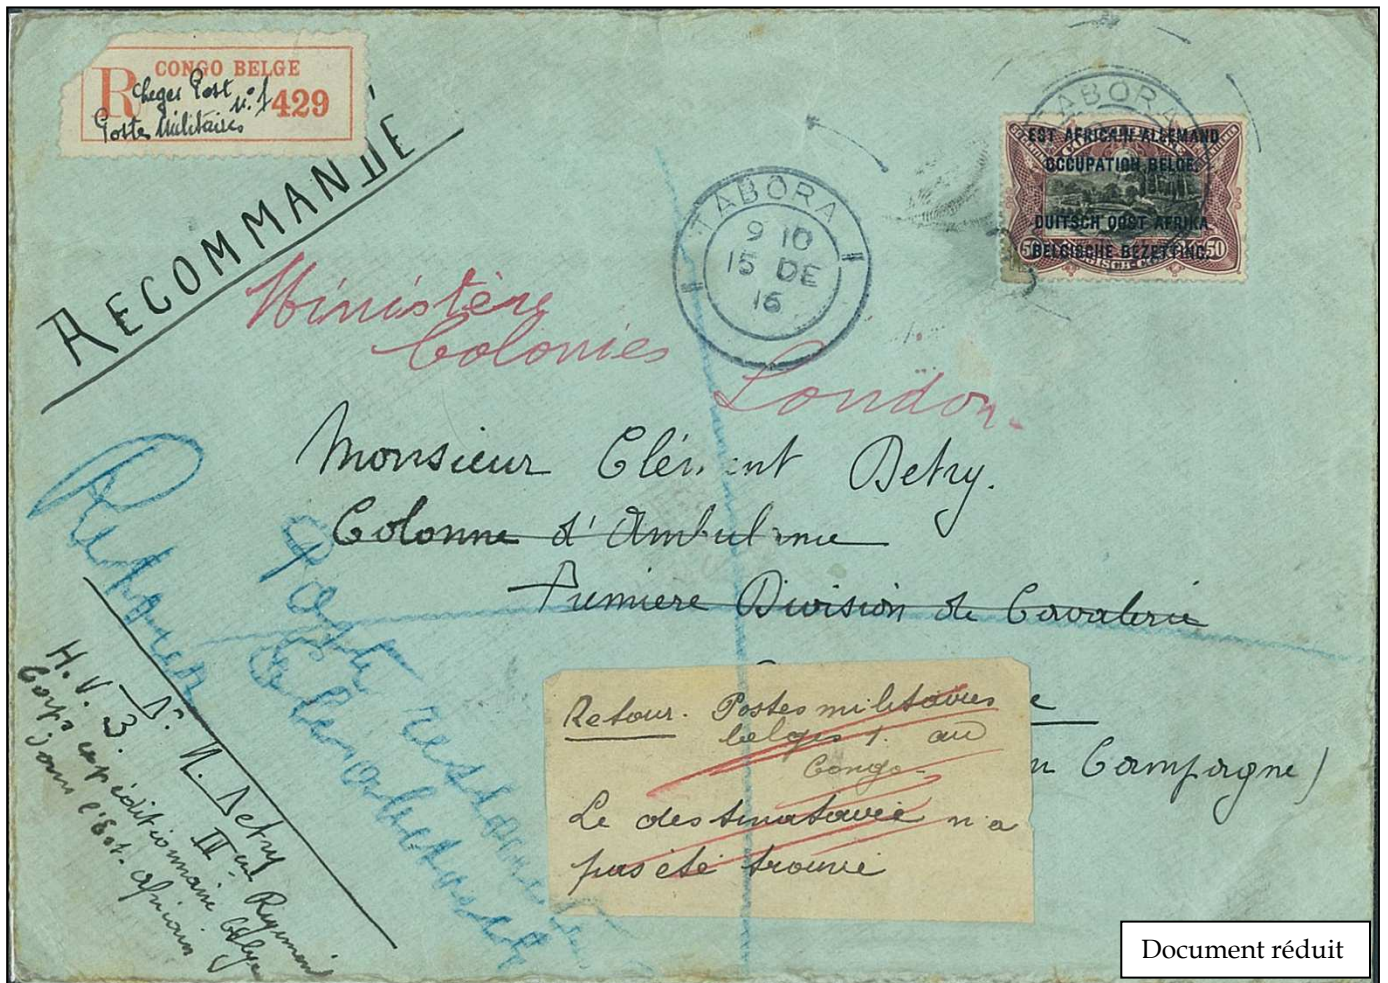 CONGO BELGE
R
Leger Post
N° 1
429
Postes Militaires
RECOMMANDÉ
TABORA
9 10
15 DE
16
TABORA
EST AFRICAIN ALLEMAND
OCCUPATION BELGE.
DUITSCH OOST AFRIKA
BELGISCHE BEZETTING.
50
50
Ministère
Colonies
London.
Monsieur Clément Detry.
Colonne d'Ambulance
Première Division de Cavalerie
(en Campagne)
Retour. Postes militaires
belges 1. au
Congo-
Le destinataire n'a
pas été trouvé
Retour
Poste restante
Elisabethville
Dr. N. Detry
H. V. 3. IIème Régiment
Corps expéditionnaire belge
dans l'Est-Africain
Document réduit